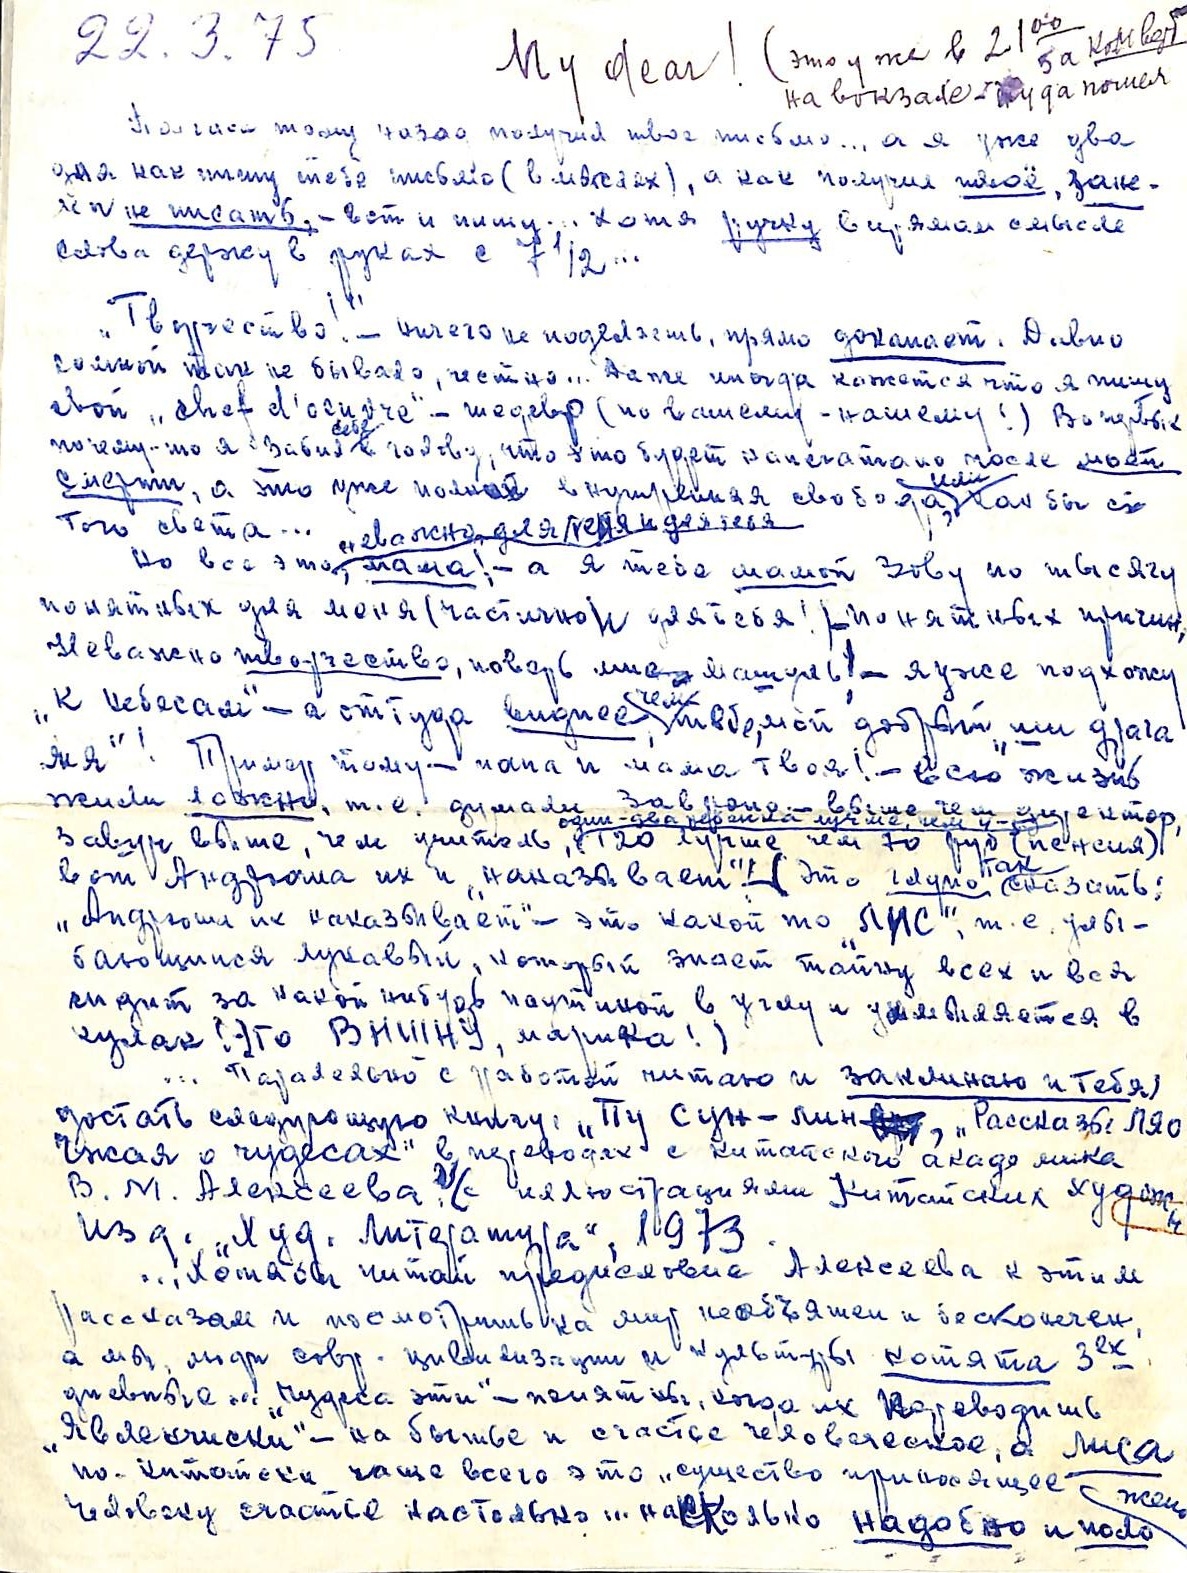 22.3.75
My dear! (это уже в 21⁰⁰
за конверт
на вокзале – туда пошел
Полчаса тому назад получил твое письмо... а я уже два
дня как пишу тебе письмо (в мыслях), а как получил твоё,
не писать, – вот и пишу... Хотя ручку в прямом смысле
слова держу в руках с 7 1/2...
"Творчество!" – ничего не поделаешь, прямо доканает. Давно
со мной так не бывало, честно... Даже иногда кажется что я пишу
свой "chef d'oeuvre" – шедевр (по вашему – нашему!) Во первых
почему-то я забил себе в голову, что это будет напечатано после моей
смерти, а это уже полная внутренняя свобода, или как бы с
того света...
неважно для меня и для тебя
Но все это, мама! – а я тебе мамой зову по тысячу
понятных для меня (частично и для тебя!) понятных причин,
неважно творчество, поверь мне мамуль! – я уже подхожу
"к небесам" – а оттуда виднее, чем тебе, мой добрый
мя"! Пример тому – папа и мама твоя! – всю жизнь
жили ложно, т.е. думали завроно – выше чем директор,
один-два
завуч выше, чем учитель, 120 лучше чем 70 руб (пенсия)
вот Андрюша их и "наказывает"! (Это глупо так сказать:
"Андрюша их наказывает" – это какой то "ЛИС", т.е. улы-
бающийся лукавый, который знает тайну всех и вся
сидит за какой нибудь паутиной в углу и ухмыляется в
кулак! Это ВИШНУ, Марика!)
... Паралельно с работой читаю и заклинаю и тебя)
достать следующую книгу: "Пу Сун-лин, "Рассказы Ляо
Чжая о чудесах" в переводах с китайского академика
В. М. Алексеева" (с иллюстрациями китайских худож
н
Изд. "Худ. Литература", 1973.
... Хотя бы читай предисловие Алексеева к этим
рассказам и посмотришь на мир необъятен и бесконечен,
а мы, люди совр. цивилизации и культуры котята 3ех
дневные... "чудеса эти" – понятны, когда их переводишь
на бытье и счастье человеческое, а лиса
по-китайски чаще всего это "существо приносящее
жень
человеку счастье настолько... насколько надобно и поло